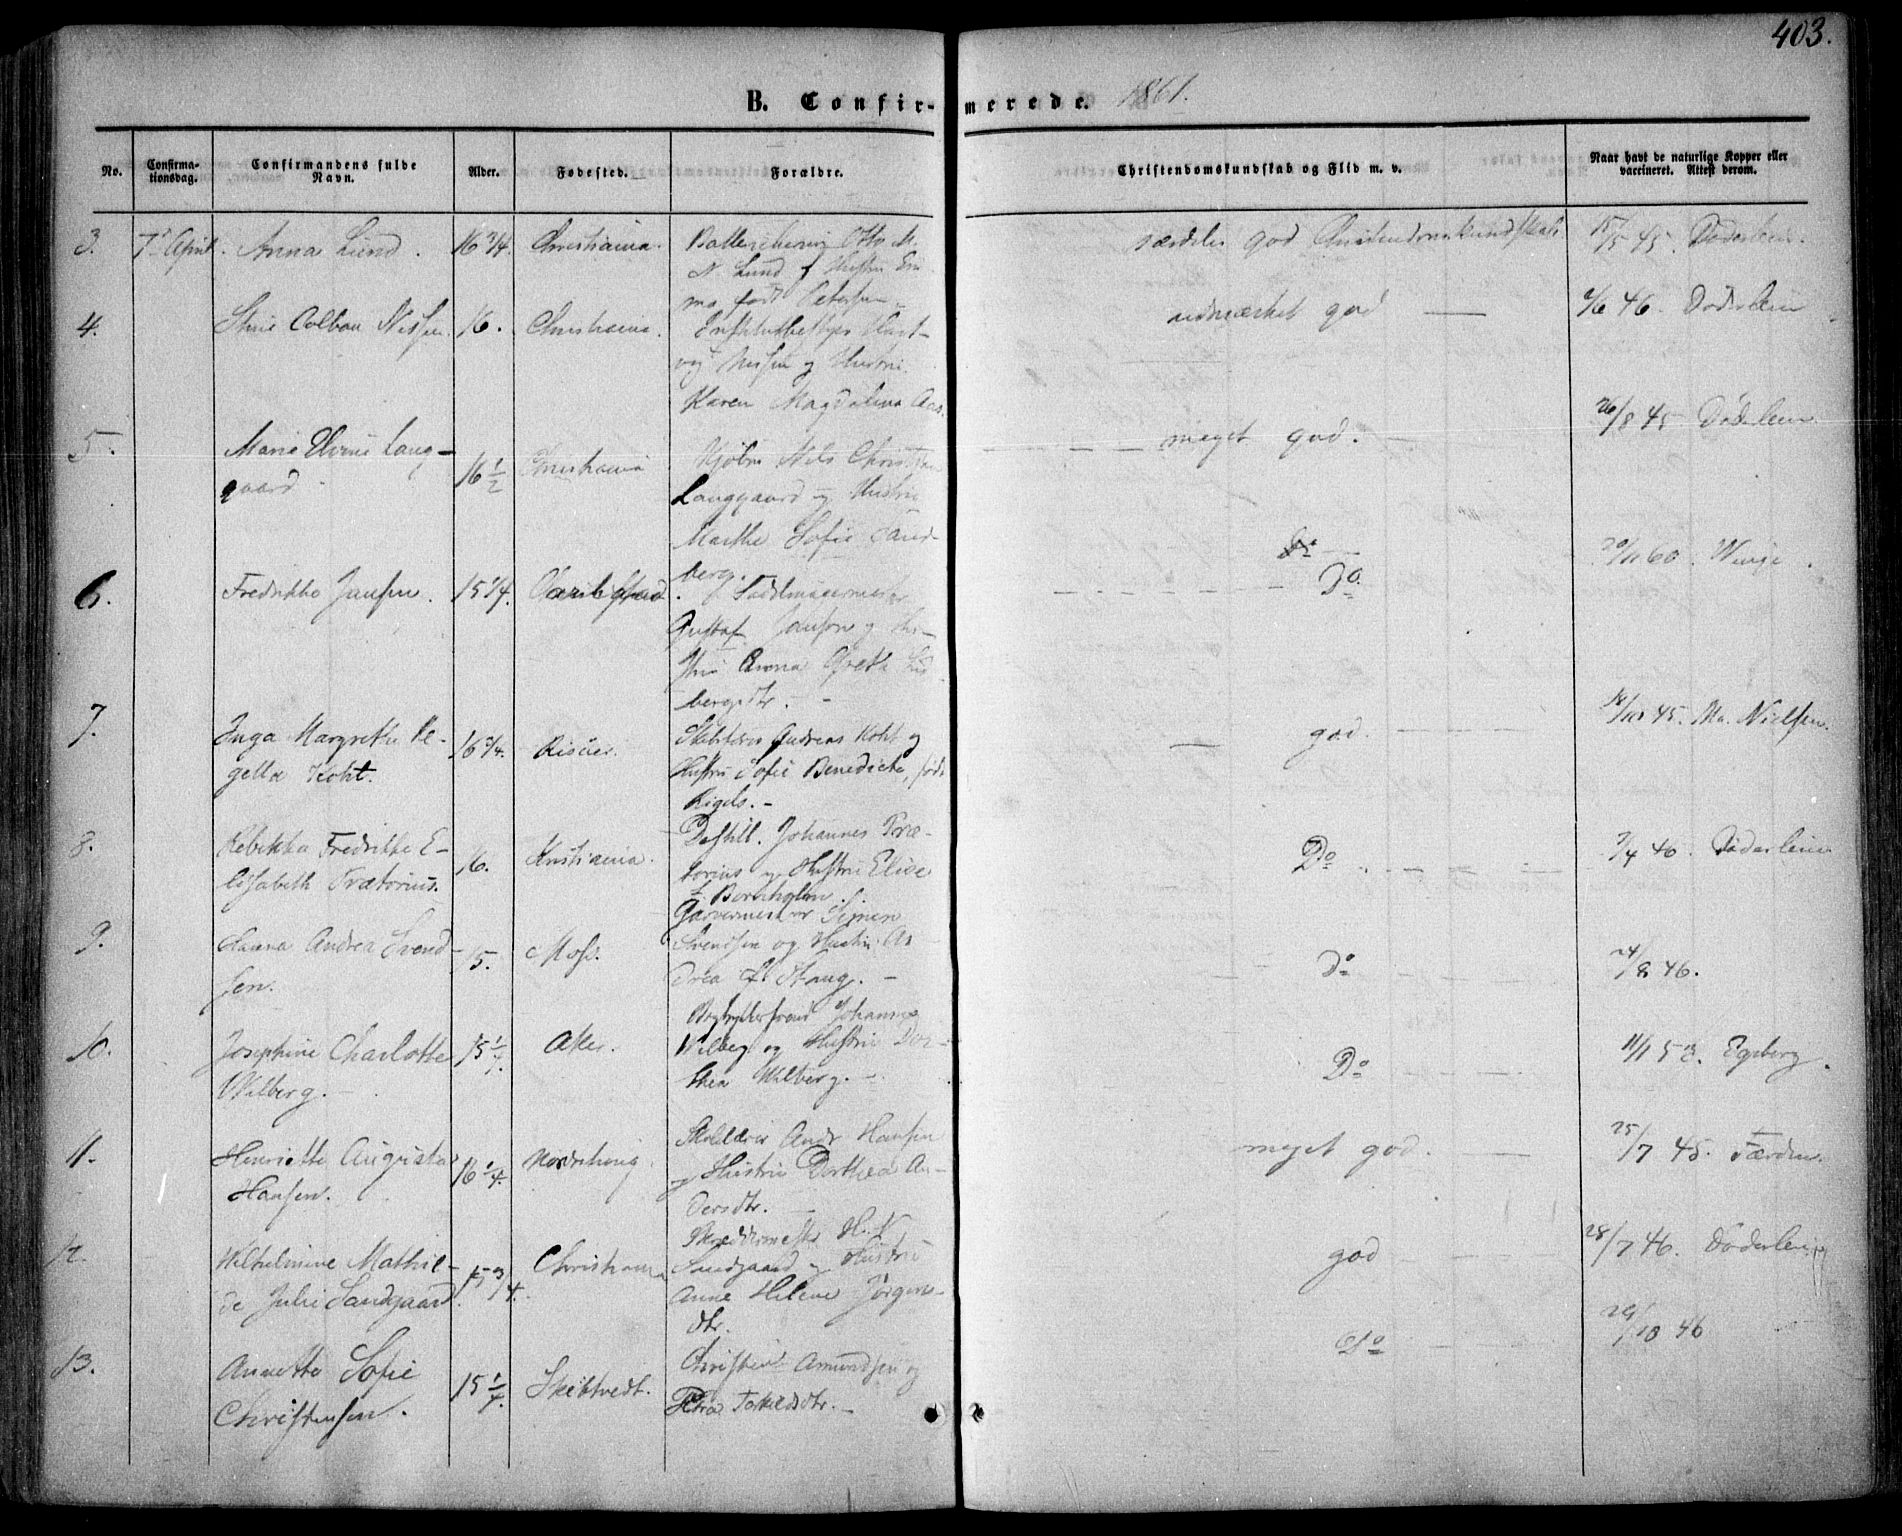 403.
B. Confirmerede. 1861.
No.
Confirma-
tionsdag.
Confirmandens fulde
Navn.
Alder.
Fødested.
Forældre.
Christendomskundskab og Flid m. v.
Naar havt de naturlige Kopper eller
vaccineret. Attest derom.
3. 7de April. Anna Lund. 16 3/4. Christiania.
Otto M.
N. Lund & Hustru Em-
ma født Petersen.
særdeles god Christendomskundskab
15/5 45. Døderlein.
4. Colban Nissen. 16. Christiania.
Institutbestyrer Hart-
vig Nissen og Hustru
Karen Magdalena Aas.
udmærket god
2/6 46. Døderlein
5. Marie Lang-
gaard
16 1/2 Christiania
Nils Christian
Langgaard og Hustru
Marthe Sofie Sand-
berg.
meget god.
26/8 45 Døderlein
6. Fredrikke Jansen. 15 1/4.
Sadelmagermester
Gustaf Jansen og Hu-
stru Anna Greta
bergsdtr.
Do
Do
20/11 60. Winge.
7. Inga Margrethe Re-
gella Koht.
16 3/4. Risøer.
Andreas Koht og
Hustru Sofie Benedicte, født
Rigels.
god.
18/10 45. Ma. Nielsen.
8. Rebekka Fredrikke E-
lisabeth Prætorius.
16. Kristiania.
Destill. Johannes Præ-
torius og Hustru Elise
f. Bornholm.
Do
3/4 46. Døderlein
9. Andrea Svend-
sen.
15. Moss.
Garvermester Simen
Svendsen og Hustru An-
drea f. Stang.
Do
24/8 46.
10. Josephine Charlotte
Wilberg.
15 1/4. Aker.
Johannes
Wilberg og Hustru Dor-
thea Wilberg.
Do
11/1 53. Egeberg.
11. Henriette Augusta
Hansen.
16 1/4.
Skolelærer Andr Hansen
og Hustru Dorthea An-
dersdtr.
meget god.
25/7 45. Færden.
12. Wilhelmine Mathil-
de Julie Sandgaard.
15 3/4. Christiania
Skreddermester H. N.
Sandgaard og Hustru
Anne Helene Jørgens-
dtr.
god
28/7 46. Døderlein
13. Annette Sofie
Christensen.
15 1/4. Skibtvedt.
Christen Amundsen og
Petra Torkildsdtr.
Do
29/10 46